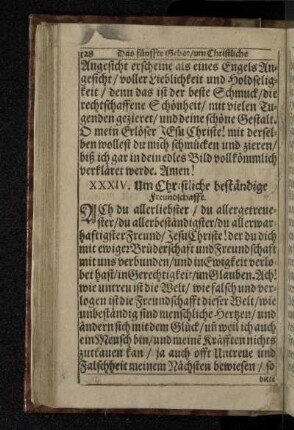 128 Das fünffte Gebot/um Christliche
Angesicht erscheine als eines Engels An-
gesicht/voller Lieblichkeit und Holdselig-
keit/denn das ist der beste Schmuck/die
rechtschaffene Schönheit/mit vielen Tu-
genden gezieret/und deine schöne Gestalt.
O mein Erlöser JEsu Christe! mit dersel-
ben wollest du mich schmücken und zieren/
biß ich gar in dein edles Bild vollkömmlich
verkläret werde. Amen!
XXXIV. Um Christliche beständige
Freundschafft.
ACh du allerliebster/du allergetreue-
ster/du allerbeständigster/du allerwar-
hafftigster Freund/JEsu Christe! der du dich
mit ewiger Brüderschafft und Freundschafft
mit uns verbunden/und in Ewigkeit verlo-
bet hast/in Gerechtigkeit/im Glauben. Ach!
wie untreu ist die Welt/wie falsch und ver-
logen ist die Freundschafft dieser Welt/wie
unbeständig sind menschliche Hertzen/und
ändern sich mit dem Glück/uñ weil ich auch
ein Mensch bin/und meinē Kräfften nichts
zutrauen kan/ja auch offt Untreue und
Falschheit meinem Nächsten bewiesen/so
bitte